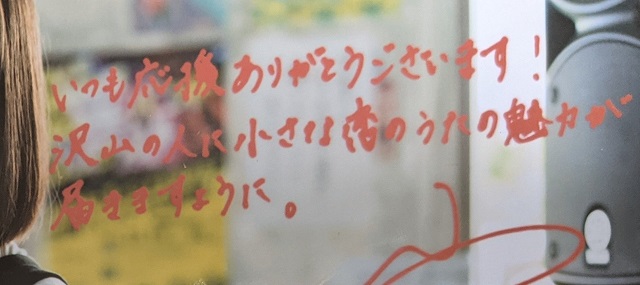 いつも応援ありがとうございます！
沢山の人に小さな恋のうたの魅力が
届きますように。